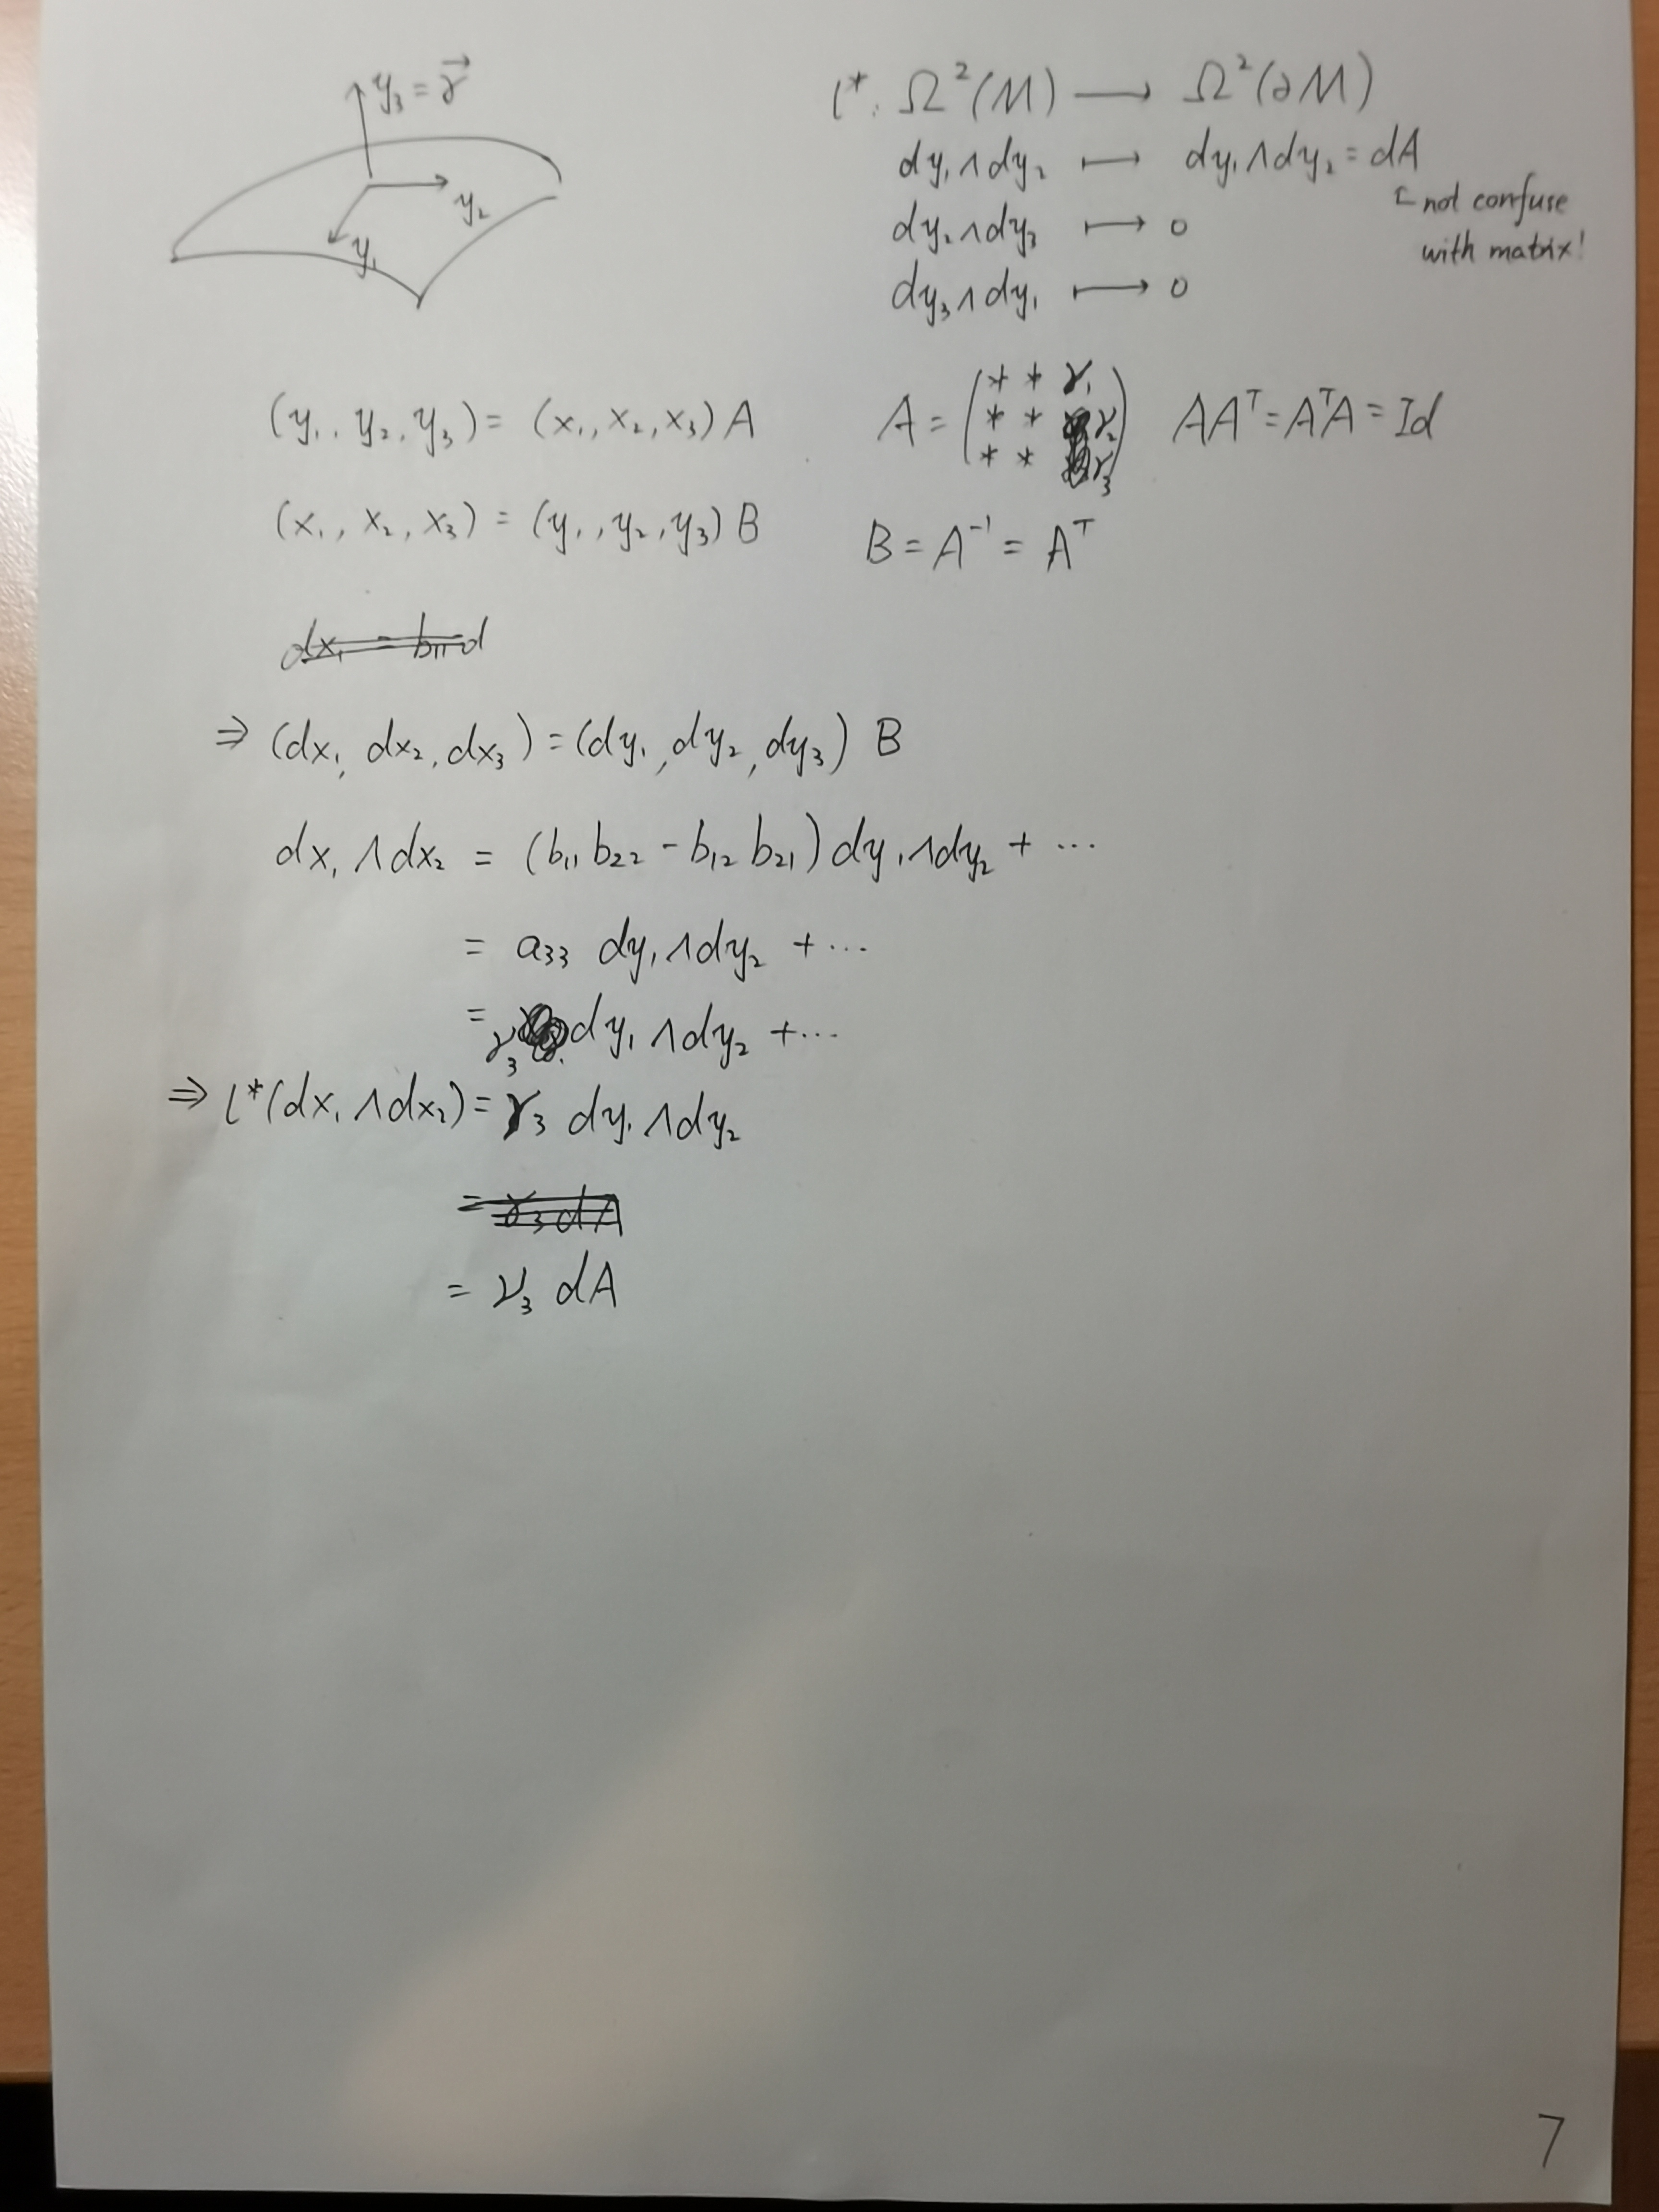 y₃ = γ⃗
y₂
y₁
ι*: Ω²(M) ⟶ Ω²(∂M)
dy₁∧dy₂ ⟼ dy₁∧dy₂ = dA
not confuse
with matrix!
dy₂∧dy₃ ⟼ 0
dy₃∧dy₁ ⟼ 0
(y₁, y₂, y₃) = (x₁, x₂, x₃) A
A = (* * γ₁
* * γ₂
* * γ₃) AAᵀ = AᵀA = Id
(x₁, x₂, x₃) = (y₁, y₂, y₃) B
B = A⁻¹ = Aᵀ
dx₁ = b₁₁ d
⇒ (dx₁, dx₂, dx₃) = (dy₁, dy₂, dy₃) B
dx₁∧dx₂ = (b₁₁ b₂₂ - b₁₂ b₂₁) dy₁∧dy₂ + ...
= a₃₃ dy₁∧dy₂ + ...
= γ₃ dy₁∧dy₂ + ...
⇒ ι*(dx₁∧dx₂) = γ₃ dy₁∧dy₂
= γ₃ dA
= ν₃ dA
7